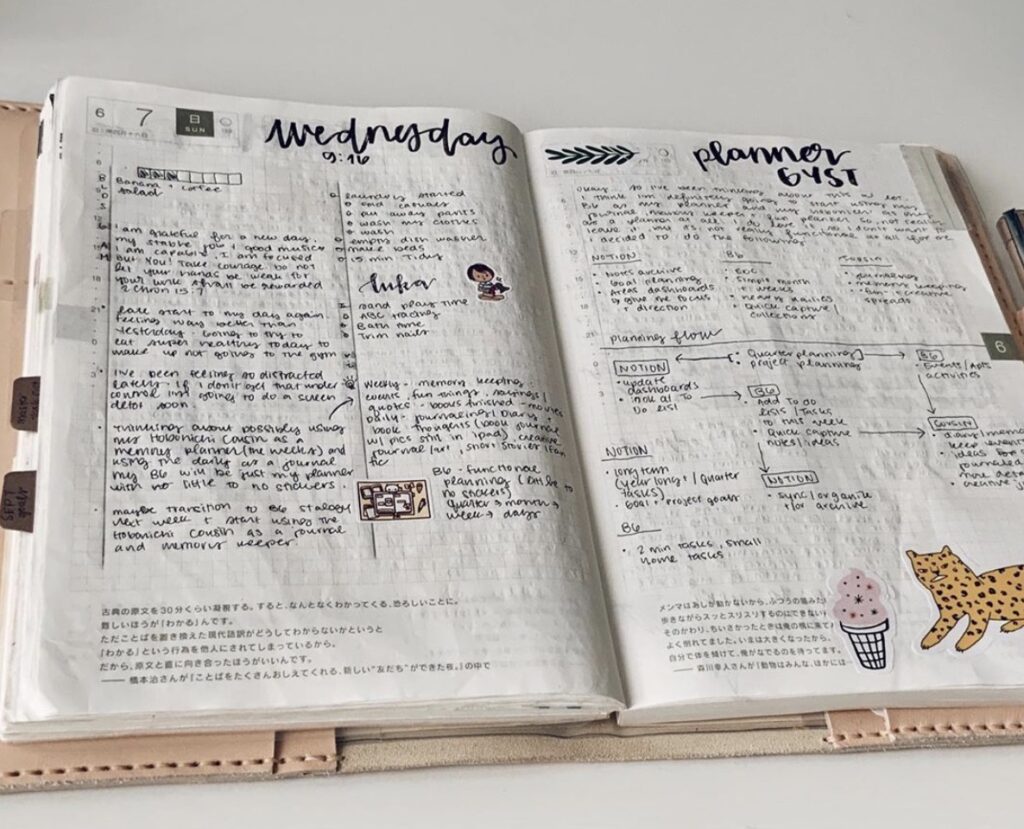 6 7 日 SUN
wednesday
9:16
Banana + coffee
salad
I am grateful for a new day.
my stable job + good music
I am capable. I am focused
But You! Take courage Do not
let your hands be weak for
your work shall be rewarded
2 Chron 15:7
late start to my day again
feeling way better than
yesterday. Going to try to
eat super healthy today to
make up not going to the gym
I've been feeling so distracted
lately. If I don't get that under
control I'm going to do a screen
detox soon.
Thinking about possibly using
my Hobonichi Cousin as a
memory planner (the weeks) and
using the daily as a journal
my B6 will be just my planner
with no little to no stickers.
maybe transition to B6 stalogy
next week + start using the
Hobonichi Cousin as a journal
and memory keeper.
laundry started
wash my clothes
wash
empty dish washer
make beds
15 min tidy
Luka
Sand play time
ABC tracing
Bath time
Trim nails
Weekly - memory keeping.
events, fun things, sayings/
quotes - books finished - movies
daily - journaling/Diary,
book thoughts (book journal
w/ pics still in ipad), creative
journal/art, short stories/fan
fic
B6 - functional
planning (little to
no stickers)
quarter → month →
week → days
古典の原文を30分くらい凝視する。すると、なんとなくわかってくる、恐ろしいことに。
難しいほうが「わかる」んです。
ただことばを置き換えた現代語訳がどうしてわからないかというと
「わかる」という行為を他人にされてしまっているから。
だから、原文と直に向き合ったほうがいいんです。
―― 橋本治さんが『ことばをたくさんおしえてくれる、新しい“友だち”ができた夜。』の中で
planner
GYST
Okay. So I've been thinking about this a lot.
I think I'm definitely going to start using my
I decided to do the following
NOTION
Notes archive
Goal planning
Areas dashboards
to give me focus
+ direction
B6
EDC
simple month
+ weeks
heavy dailies
Quick capture
collections
Cousin
journaling
memory keeping
fun + creative
spreads
planning flow
NOTION
update
dashboards
look at To
Do list
Quarter planning
project planning
B6
Events/Apts
activities
B6
Add To do
lists/Tasks
to this week
Quick capture
notes/ideas
Cousin
diary/memo
keep event
NOTION
sync/organize
+/or archive
NOTION
long term
(year long + / quarter
tasks)
Goal + project goals
B6
2 min tasks, small
home tasks
6
メンマはあしが動かないから、ふつうの猫みた
歩きながらスッとスリスリするのはできない
そのかわり、ちいさかったときは俺の横に来て
よく倒れてました。いまは大きくなったから、
自分で体を傾けて、俺がなでるのを待ってます。
―― 森川幸人さんが『動物はみんな、ほかには
SEPT